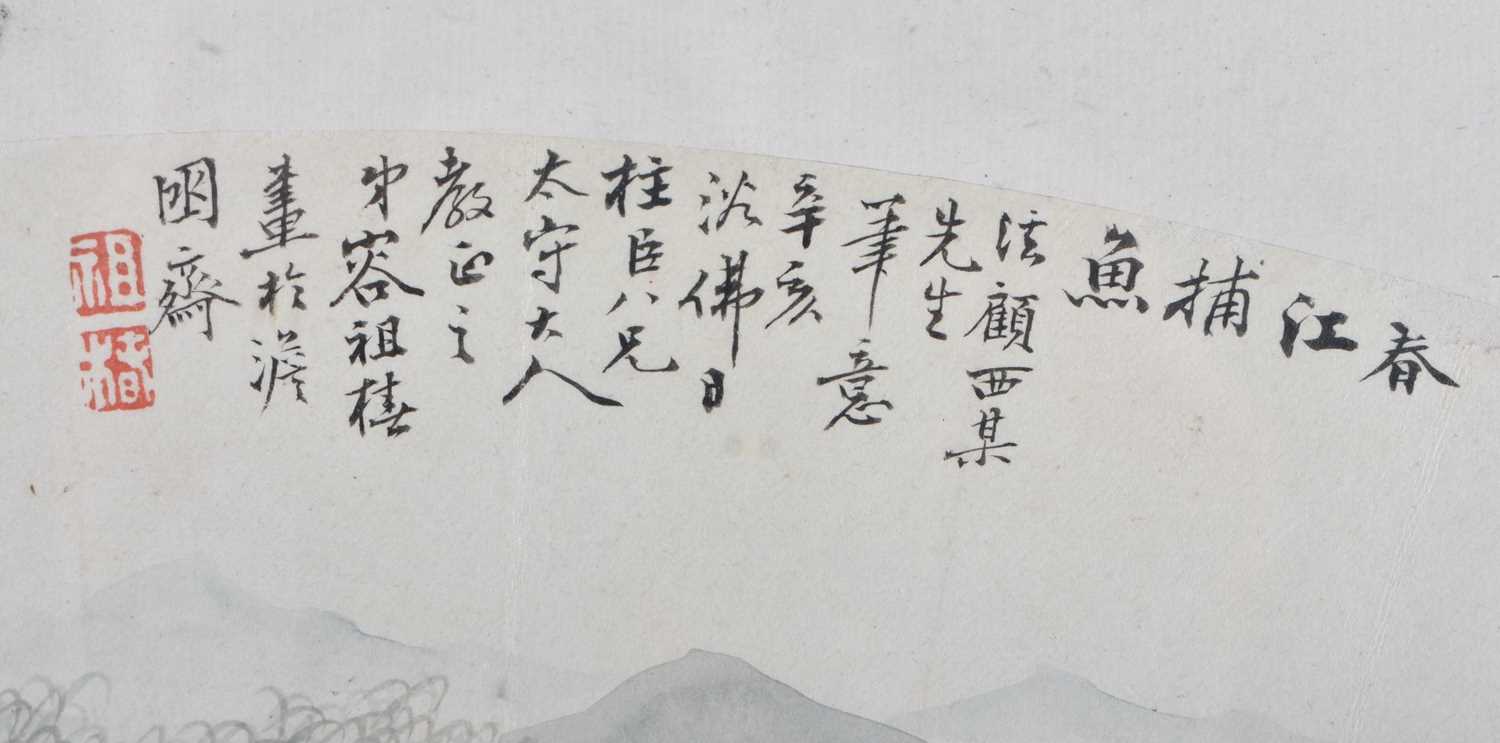 春
江
捕
魚
法顧西某
先生
筆意
辛亥
浴佛日
柱臣八兄
太守大人
教正之
弟容祖椿
畫於澹
囦齋
祖椿